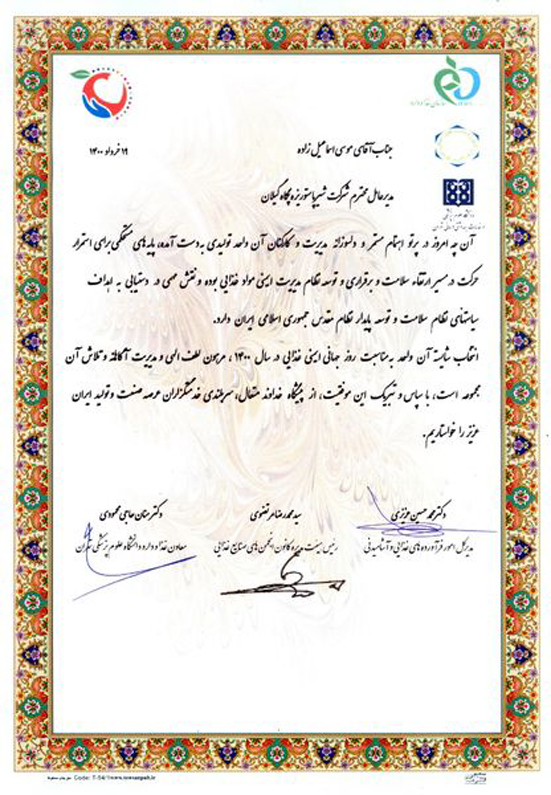 ۱۹ خرداد ۱۴۰۰
جناب آقای موسی اسماعیل زاده
مدیرعامل محترم شرکت شیر پاستوریزه پگاه گیلان
آن چه امروز در پرتو اهتمام مستمر و دلسوزانه مدیریت و کارکنان آن واحد تولیدی به دست آمده، پایه های مستحکمی برای استمرار
حرکت در مسیر ارتقاء سلامت و برقراری و توسعه نظام مدیریت ایمنی مواد غذایی بوده و نقش مهمی در دستیابی به اهداف
سیاستهای نظام سلامت و توسعه پایدار نظام مقدس جمهوری اسلامی ایران دارد.
انتخاب شایسته آن واحد به مناسبت روز جهانی ایمنی غذایی در سال ۱۴۰۰، مرهون لطف الهی و مدیریت آگاهانه و تلاش آن
مجموعه است، با سپاس و تبریک این موفقیت، از پیشگاه خداوند متعال، سربلندی خدمتگزاران عرصه صنعت و تولید ایران
عزیز را خواستاریم.
دکتر محمد حسین عزیزی
مدیرکل امور فرآورده های غذایی و آشامیدنی
سید محمدرضا مرتضوی
رئیس هیئت مدیره کانون انجمن های صنایع غذایی
دکتر حنان حاجی محمودی
معاون غذا و دارو دانشگاه علوم پزشکی تهران